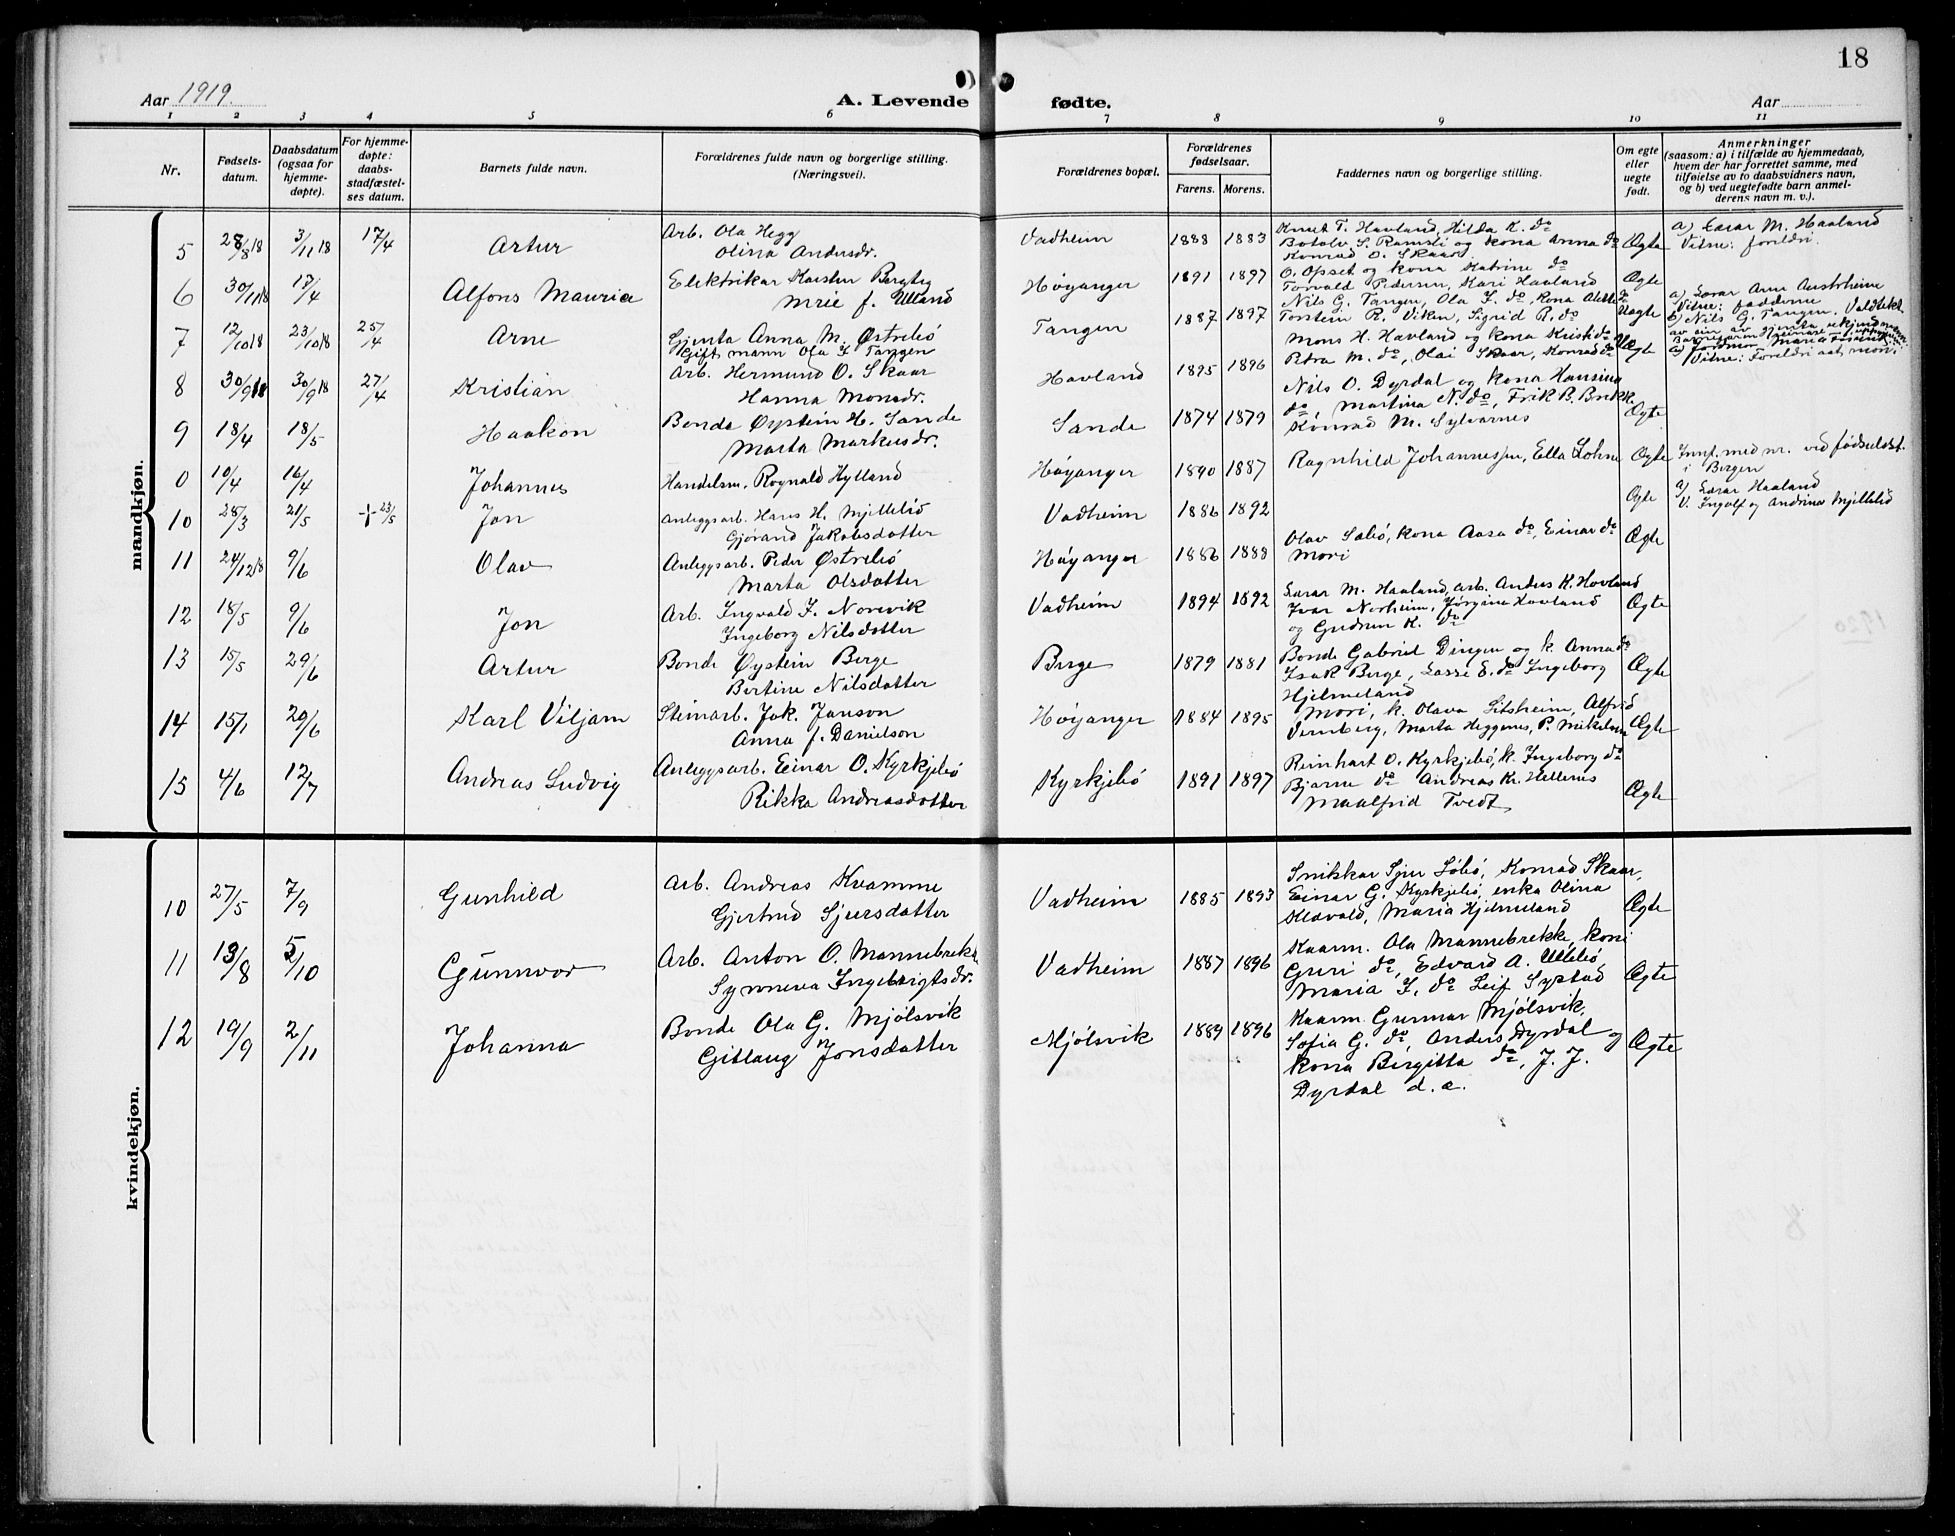 18
Aar 1919.
A. Levende fødte.
Aar
1 2 3 4 5 6 7 8 9 10 11
Nr.
Fødsels-
datum.
Daabsdatum
(ogsaa for
hjemme-
døpte).
For hjemme-
døpte:
daabs-
stadfæstel-
ses datum.
Barnets fulde navn.
Forældrenes fulde navn og borgerlige stilling.
(Næringsvei).
Forældrenes bopæl.
Forældrenes
fødselsaar.
Farens. Morens.
Faddernes navn og borgerlige stilling.
Om egte
eller
uegte
født.
Anmerkninger
(saasom: a) i tilfælde av hjemmedaab,
hvem der har forrettet samme, med
tilføielse av to daabsvidners navn,
og b) ved uegtefødte barn anmel-
derens navn m. v.).
mandkjøn.
5 28/8 18 3/11 18 17/4 Artur
Arb. Ola Hegg
Olina Andersdr.
Vadheim 1888 1883
Knut T. Havland, Hilda K. do
Botolv S. Ramsli og kona Anna do
Konrad O. Skaar
Ægte
a) Lærar M. Haaland
Vitne: foreldri.
6 30/11 18 17/4 Alfons Mauria
Elektrikar Karsten Bergby
Mrie f. Ulland
Høyanger 1891 1897
O. Opset og kona Katrine do
Torvald Pedersen, Kari Havland
Ægte
7 12/10 18 23/10 18 25/4 Arne
Gjenta Anna M. Østrebø
Gift mann Ola J. Tangen
Tangen 1887 1897
Nils G. Tangen, Ola J. do, kona Alette do
Torstein R. Viken, Sigrid R. do
Uægte
a) Lærar Arne Austrheim
Vitne: fadderne
b) Nils G. Tangen, Vadheim
8 30/9 18 30/9 18 27/4 Kristian
Arb. Hermund O. Skaar
Hanna Monsdr.
Havland 1895 1896
Mons H. Havland og kona Kristi do
Petra M. do, Olai Skaar, Konrad do
Ægte
Vitne: Foreldri aat moni
9 18/4 18/5 Haakon
Bonde Øystein H. Sande
Marta Markusdr.
Sande 1874 1879
Nils O. Dyrdal og kona Hansina
do, Martina N. do, Erik B. Brekk
Konrad M. Sylvarnes
Ægte
0 10/4 16/4 Johannes
Handelsm. Rognald Hylland
Høyanger 1890 1887
Ragnhild Johannessen, Ella Lohne
Ægte
Innf. med nr. ved fødselsst.
i Bergen
10 28/3 21/5 + 23/5 Jon
Anleggsarb. Hans H. Mjellelid
Gjørand Jakobsdotter
Vadheim 1886 1892
Ægte
a) Lærar Haaland
V. Ingolf og Andrine Mjellelid
11 24/12 18 9/6 Olav
Anleggsarb. Peder Østrebø
Marta Olsdotter
Høyanger 1886 1888
Olav Søbø, kona Aasa do, Einar do
Mori
Ægte
12 18/5 9/6 Jon
Arb. Ingvald J. Norevik
Ingeborg Nilsdotter
Vadheim 1894 1892
Lærar M. Haaland, arb. Anders K. Hovland
Ivar Nerheim, Jørgina Hovland
og Gudrun K. do
Ægte
13 15/5 29/6 Artur
Bonde Øystein Berge
Bertine Nilsdotter
Berge 1879 1881
Bonde Gabriel Dingen og k. Anna do
Isak Berge, Lasse E. do Ingeborg
Hjelmeland
Ægte
14 15/1 29/6 Karl Viljam
Steinarb. Jak. Janson
Anna f. Danielson
Høyanger 1884 1895
Mori, k. Olava Sitsheim, Alfred
Vernberg, Marta Heggenes, P. Mikelsen
Ægte
15 4/6 12/7 Andreas Ludvig
Anleggsarb. Einar O. Kyrkjebø
Rikka Andreasdotter
Kyrkjebø 1891 1897
Reinhart O. Kyrkjebø, k. Ingeborg do
Bjarne do Andreas Kr. Hellenes
Maalfrid Tvedt
Ægte
kvindekjøn.
10 27/5 7/9 Gunhild
Arb. Andreas Kvamme
Gjertrud Sjursdatter
Vadheim 1885 1893
Snikkar Sjur Søbø, Konrad Skaar,
Einar G. Kyrkjebø, enka Olina
Klævold, Maria Hjelmeland
Ægte
11 13/8 5/10 Gunnvor
Arb. Anton O. Mannebrekke
Synneva Ingebrigtsdr.
Vadheim 1887 1896
Kaarm. Ola Mannebrekke, koni
Guri do, Edvard A. Ullebø
Maria J. do Leif Systad
Ægte
12 19/9 2/11 Johanna
Bonde Ola G. Mjølsvik
Gitlaug Jonsdatter
Mjølsvik 1889 1896
Kaarm. Gunnar Mjølsvik,
Sofia G. do, Anders Dyrdal og
kona Birgitta do, J. J.
Dyrdal d.æ.
Ægte